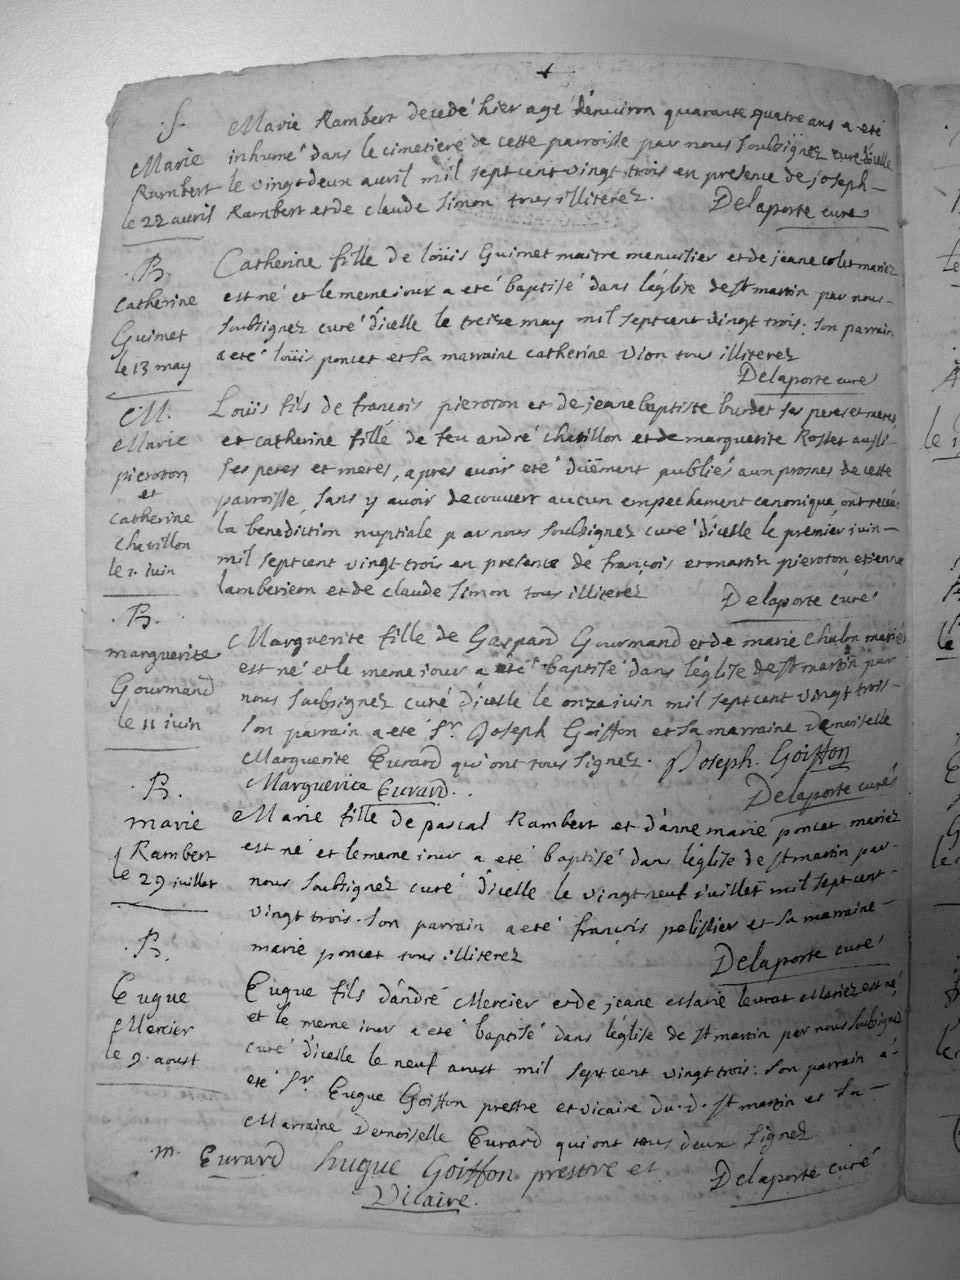 .S.
Marie
Rambert
le 22 avril
Marie Rambert decedé hier agé denviron quarante quatre ans a eté
inhumé dans le cimetiere de cette parroisse par nous soubsignez curé dicelle
le vingt deux avril mil sept cent vingt trois en presence de joseph
Rambert et de claude simon tous illiterez.
Delaporte curé
.B.
Catherine
Guimet
le 13 may
Catherine fille de loüis Guimet maitre menusier et de jeane colet mariez
est né et le meme jour a eté baptisé dans léglise de st martin par nous
soubsignez curé dicelle le treize may mil sept cent vingt trois: son parrain
a eté loüis poncet et sa marraine catherine vion tous illiterez
Delaporte curé
M.
Marie
pieroton
et
catherine
chatillon
le 1. juin
Loüis fils de françois pieroton et de jeane baptiste burdet ses peres et meres
et catherine fille de feu andré chatillon et de marguerite Rostet aussi
ses peres et meres, apres avoir eté düement publiés aux prosnes de cette
parroisse, sans y avoir decouvert aucun empechement canonique, ont receu
la benediction nuptiale par nous soubsignez curé dicelle le premier juin
mil sept cent vingt trois en presence de françois et martin pieroton, etienne
et de claude simon tous illiterez
Delaporte curé
.B.
marguerite
Gourmand
le 11 juin
Marguerite fille de Gaspard Gourmand et de marie Chalon mariés
est né et le meme jour a eté baptisé dans léglise de st martin par
nous soubsignez curé dicelle le onze juin mil sept cent vingt trois
son parrain a eté sr. Joseph Goiffon et sa marraine demoiselle
Marguerite Eurard qui ont tous signez. Joseph. Goiffon
Marguerite Eurard..
Delaporte curé
.B.
marie
Rambert
le 29 juillet
Marie fille de pascal Rambert et d'anne marie poncet mariez
est né et le meme jour a eté baptisé dans léglise de st martin par
nous soubsignez curé dicelle le vingt neuf juillet mil sept cent
vingt trois. son parrain a eté françois pelissier et sa marraine
marie poncet tous illiterez
Delaporte curé
.B.
Eugue
Mercier
le 9. aoust
Eugue fils d'andré Mercier et de jeane Marie leurat Mariez est né,
et le meme jour a eté baptisé dans léglise de st martin par nous soubsignez
curé dicelle le neuf aoust mil sept cent vingt trois: son parrain a
eté sr. Eugue Goiffon prestre et vicaire du.d. st martin et sa
Marraine Demoiselle Eurard qui ont tous deux signez
.m. Eurard hugue Goiffon prestre et
Vicaire.
Delaporte curé